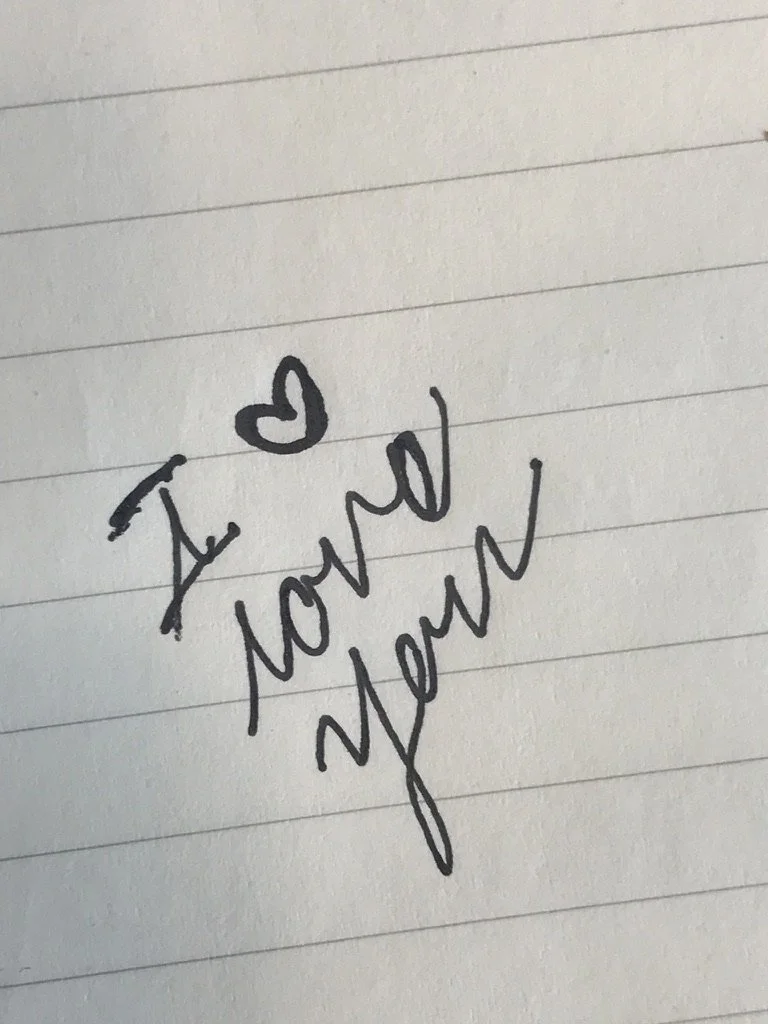 I ♡
love
you